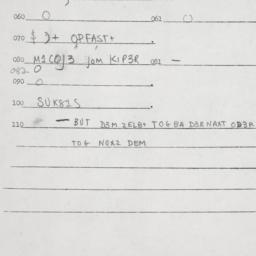 060 O 062 O
070 OPFAST+
080 M1CQJ3 JOM KIP3R 081 —
082 O
090 O
100 SUK82S
110 — BUT D3M ZELB+ TOG BA D3R NAXT OD3R
TOG NOR2 DEM